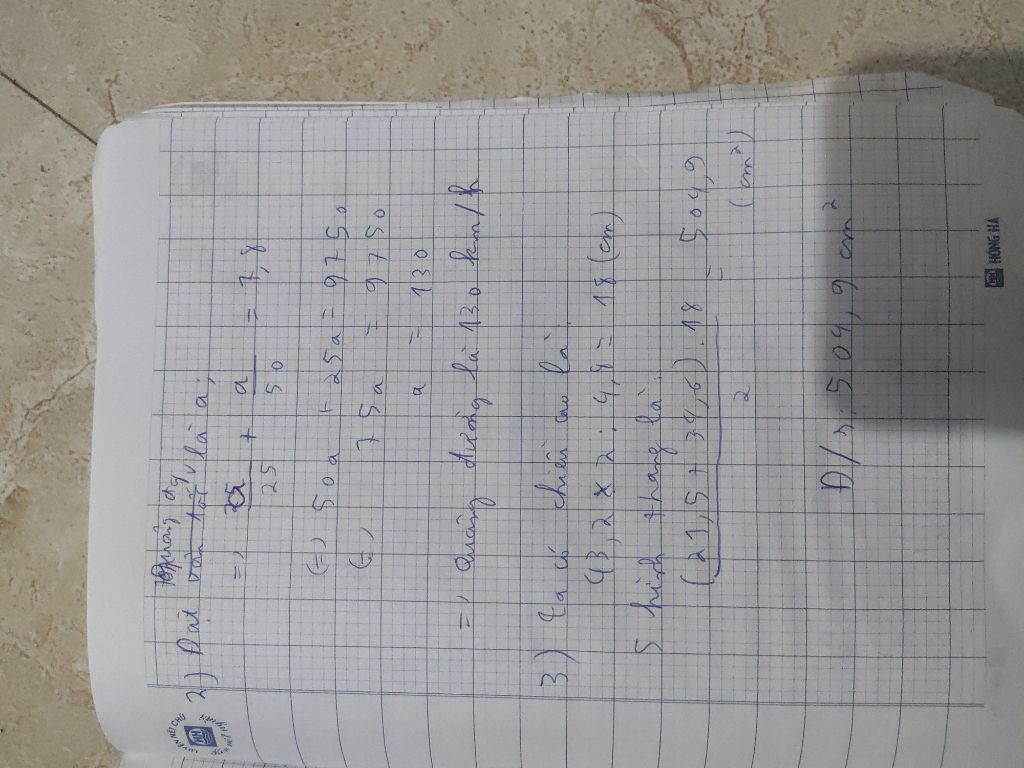 2) Đặt quãng đg là a,
=, a/25 + a/50 = 7,8
(=, 50a + 25a = 9750
(=, 75a = 9750
a = 130
=, Quãng đường là 130 km/h
3) Ta có chiều cao là
43,2 x 2 : 4,8 = 18 (cm)
S hình thang là:
(21,5 + 34,6) . 18 / 2 = 504,9 (cm²)
Đ/s, 504,9 cm²
HỒNG HÀ